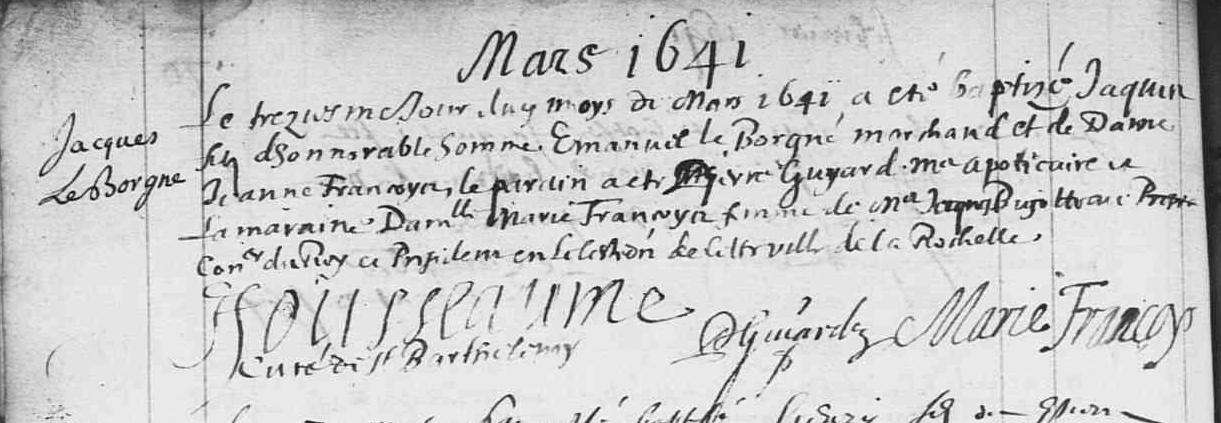 Mars 1641
Jacques
Le Borgne
Le trezuiesme Jour du moys de Mars 1641 a eté baptizé Jaques
filz d'honnorable homme Emanuel le Borgne marchand et de Dame
Jeanne Françoyse, le parain a eté Pierre Guyard me apoticaire et
La maraine Damlle Marie Françoyse femme de Me
Coner du Roy et President en l'election de cette ville de la Rochelle.
Housseaume
Curé de St Barthelemy
P Guiard
Marie Françoys